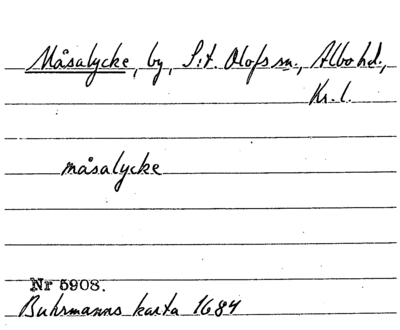 Måsalycke, by, S:t Olofs sn., Albo hd.,
Kr. l.
måsalycke
Nr 5908.
Buhrmanns karta 1684